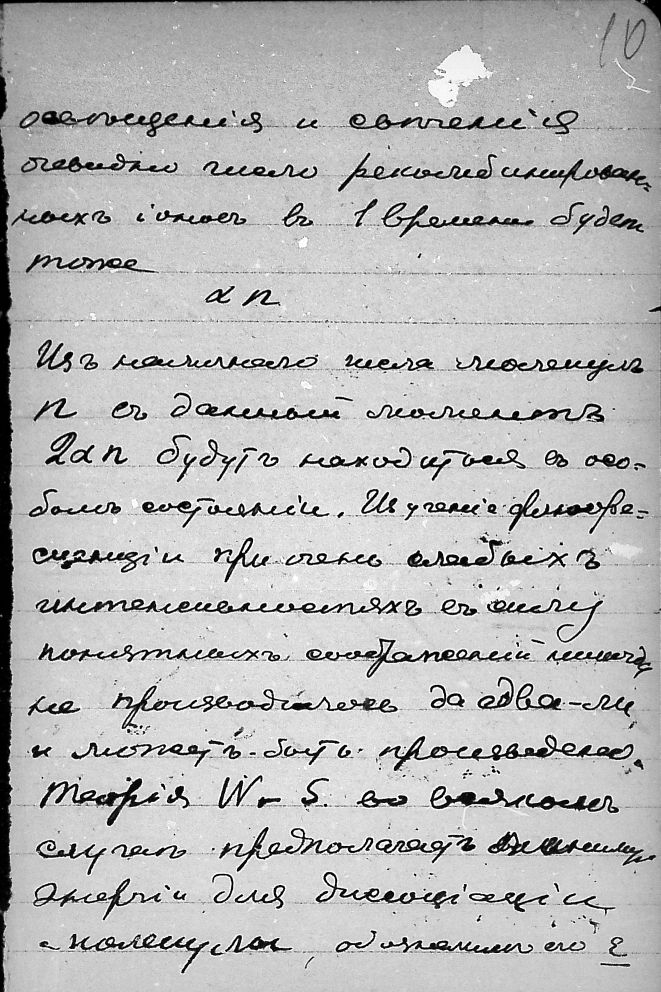 10
освѣщенія и свѣченія
очевидно число рекомбинирован=
ныхъ іоновъ въ 1 времени будет
тоже
α n
Изъ наличнаго числа молекулъ
n въ данный моментъ
2αn будутъ находиться въ осо-
бомъ состояніи. Изученіе флюоре=
сценціи при очень слабыхъ
интенсивностяхъ въ силу
понятныхъ соображеній никогда
не производилось да едва-ли
и можетъ быть произведено.
Теорія W-S. во всякомъ
случаѣ предполагаетъ
энергіи для диссоціаціи
молекулы, обозначимъ его ε